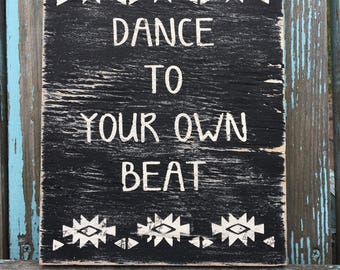 DANCE
TO
YOUR OWN
BEAT